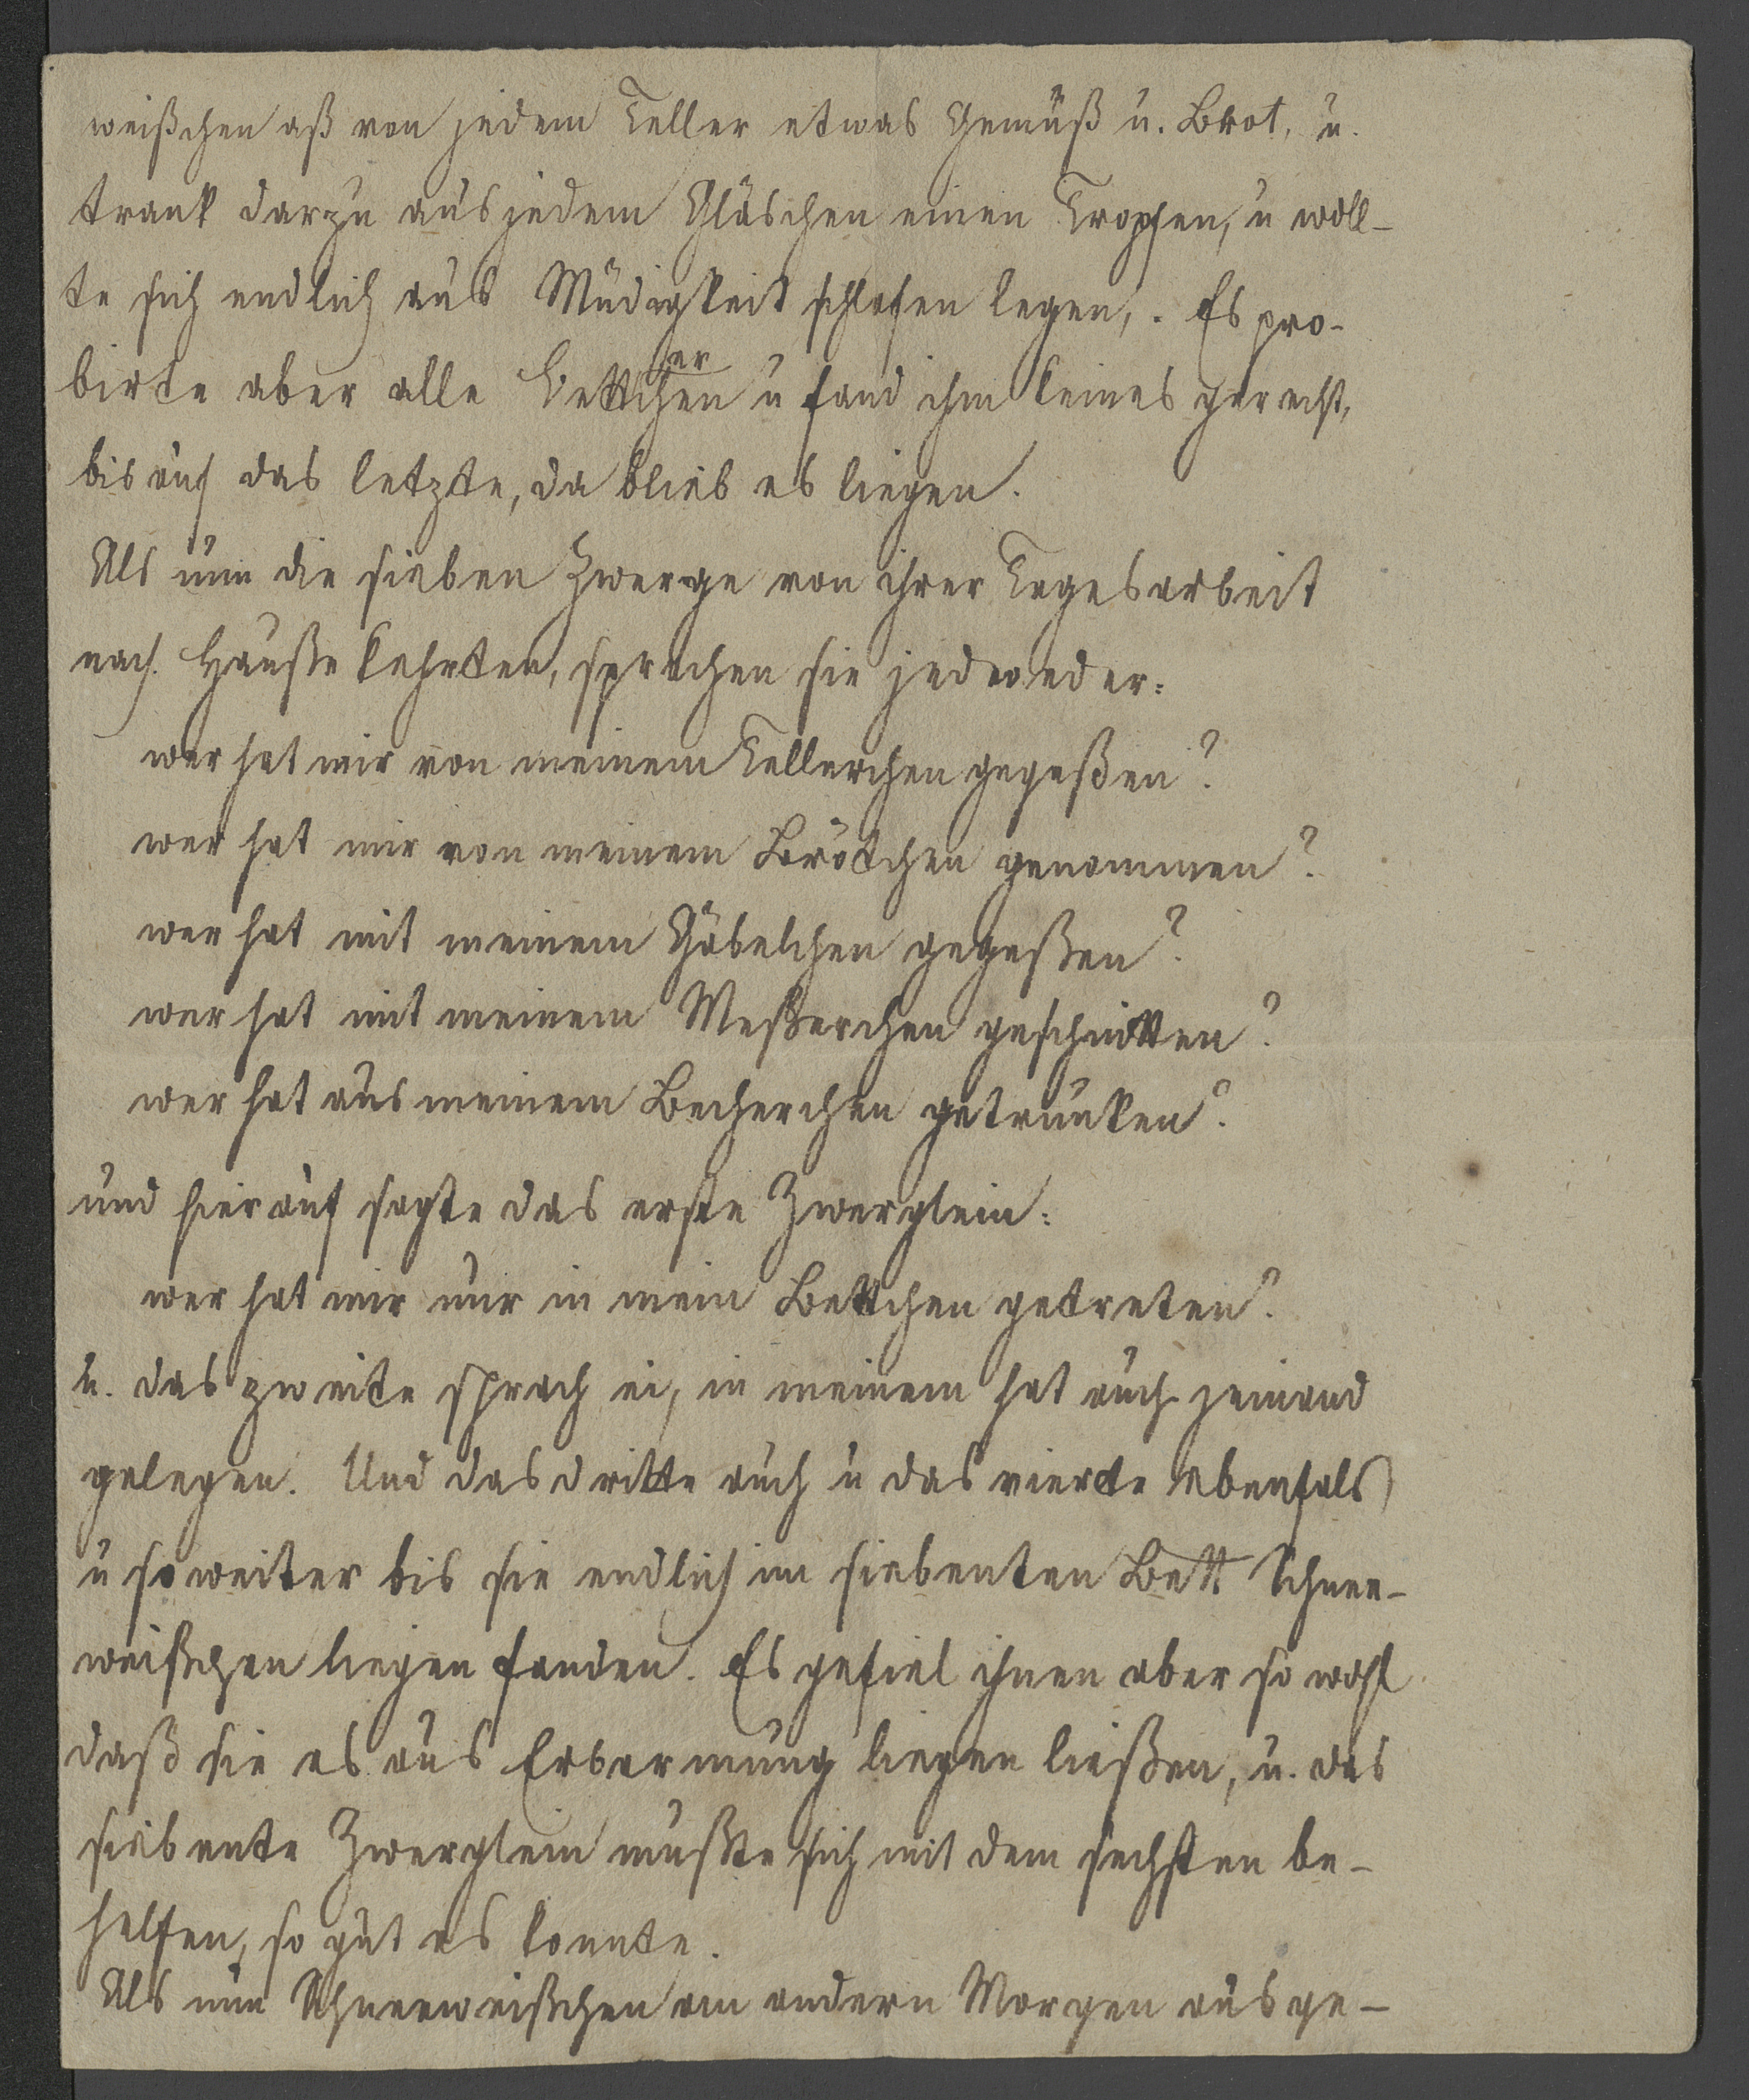 weißchen aß von jedem Teller etwas Gemüß u. Brot, u.
trank darzu aus jedem Gläschen einen Tropfen, u woll-
te sich endlich aus Müdigkeit schlafen legen,. Es pro-
birte aber alle Bettcher u fand ihm keines gerecht,
bis auf das letzte, da blieb es liegen.
Als nun die sieben Zwerge von ihrer Tagesarbeit
nach Hauße kehrten, sprachen sie jedweder:
wer hat mir von meinem Tellerchen gegeßen?
wer hat mir von meinem Brötchen genommen?
wer hat mit meinem Gäbelchen gegeßen?
wer hat mit meinem Meßerchen geschnitten?
wer hat aus meinem Becherchen getrunken?
und hierauf sagte das erste Zwerglein:
wer hat mir nur in mein Bettchen getreten?
u. das zweite sprach ei, in meinem hat auch jemand
gelegen. Und das dritte auch u das vierte ebenfals
u so weiter bis sie endlich im siebenten Bett Schnee-
weißchen liegen fanden. Es gefiel ihnen aber so wohl
daß sie es aus Erbarmung liegen ließen, u. das
siebente Zwerglein mußte sich mit dem sechsten be-
helfen, so gut es konnte.
Als nun Schneeweißchen am andern Morgen ausge-